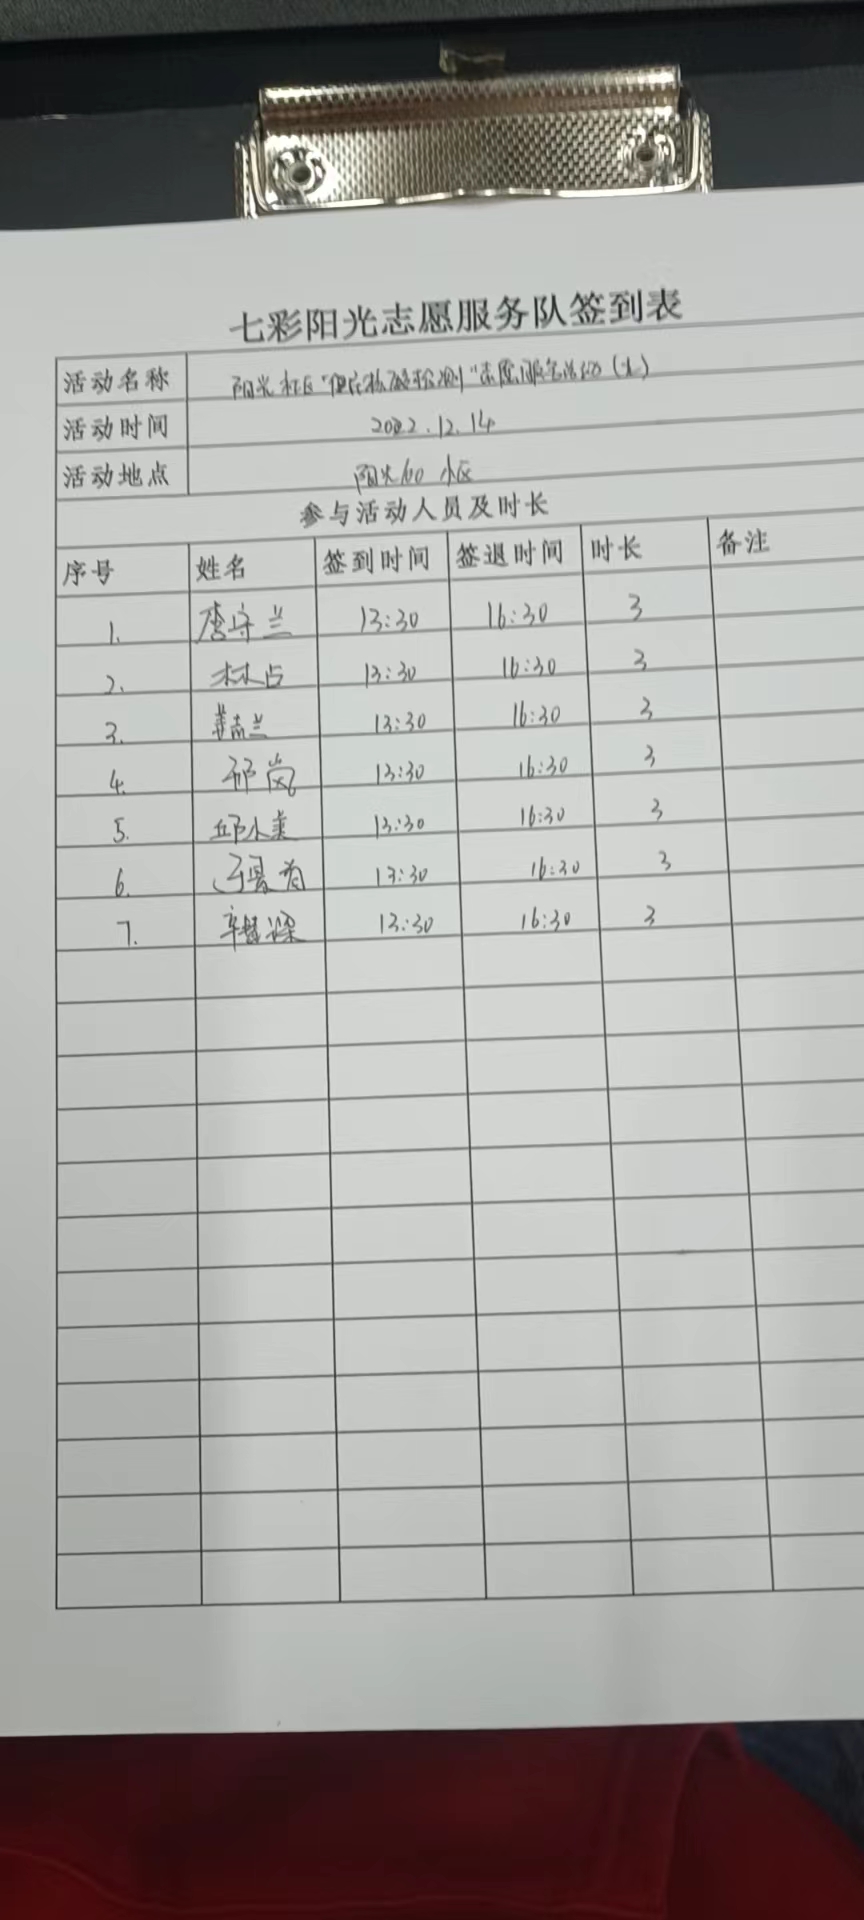 七彩阳光志愿服务队签到表
活动名称 阳光社区"便民核酸检测"志愿服务活动
活动时间 2022.12.14
活动地点 阳光100小区
参与活动人员及时长
序号 姓名 签到时间 签退时间 时长 备注
1. 李守兰 13:30 16:30 3
2. 林占 13:30 16:30 3
3. 姜志兰 13:30 16:30 3
4. 邢岚 13:30 16:30 3
5. 邱小美 13:30 16:30 3
6. 13:30 16:30 3
7. 13:30 16:30 3